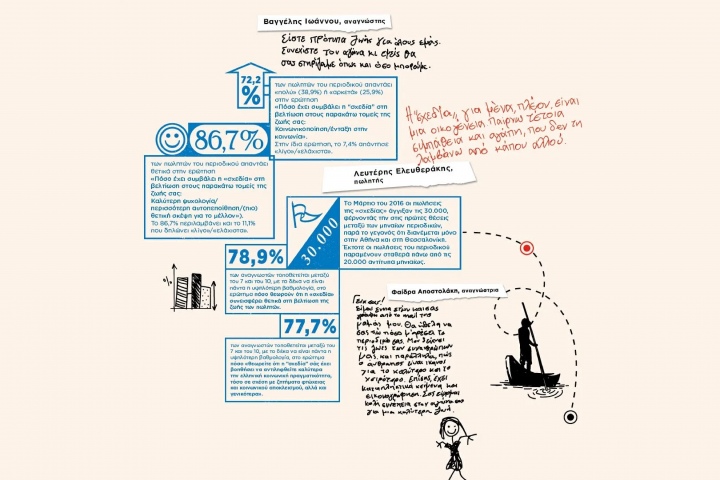 Βαγγέλης Ιωάννου, αναγνώστης
Είστε πρότυπα ζωής για όλους εμάς.
Συνεχίστε τον αγώνα κι εμείς θα
σας στηρίξουμε όπως και όσο μπορούμε.
72,2
%
των πωλητών του περιοδικού απαντάει
«πολύ» (38,9%) ή «αρκετά» (25,9%)
στην ερώτηση
«Πόσο έχει συμβάλει η "σχεδία" στη
βελτίωση στους παρακάτω τομείς της
ζωής σας:
Κοινωνικοποίηση/ένταξη στην
κοινωνία».
Στην ίδια ερώτηση, το 7,4% απάντησε
«λίγο»/«ελάχιστα».
Η "σχεδία", για μένα, πλέον, είναι
μια οικογένεια. Παίρνω τέτοια
συμπάθεια και αγάπη, που δεν τη
λαμβάνω από κάπου αλλού.
Λευτέρης Ελευθεράκης,
πωλητής
86,7%
των πωλητών του περιοδικού απαντάει
θετικά στην ερώτηση
«Πόσο έχει συμβάλει η «σχεδία» στη
βελτίωση στους παρακάτω τομείς της
ζωής σας:
Καλύτερη ψυχολογία/
περισσότερη αυτοπεποίθηση/(πιο)
θετική σκέψη για το μέλλον»).
Το 86,7% περιλαμβάνει και το 11,1%
που δηλώνει «λίγο»/«ελάχιστα».
30.000
Το Μάρτιο του 2016 οι πωλήσεις
της «σχεδίας» άγγιξαν τις 30.000,
φέρνοντάς την στις πρώτες θέσεις
μεταξύ των μηνιαίων περιοδικών,
παρά το γεγονός ότι διανέμεται μόνο
στην Αθήνα και στη Θεσσαλονίκη.
Έκτοτε οι πωλήσεις του περιοδικού
παραμένουν σταθερά πάνω από τις
20.000 αντίτυπα μηνιαίως.
78,9%
των αναγνωστών τοποθετείται μεταξύ
του 7 και του 10, με το δέκα να είναι
πάντα η υψηλότερη βαθμολογία, στο
ερώτημα πόσο θεωρούν ότι η «σχεδία»
συνεισφέρει θετικά στη βελτίωση της
ζωής των πωλητών.
77,7%
των αναγνωστών τοποθετείται μεταξύ του
7 και του 10, με το δέκα να είναι πάντα η
υψηλότερη βαθμολογία, στο ερώτημα
πόσο «θεωρείτε ότι η "σχεδία" σάς έχει
βοηθήσει να αντιληφθείτε καλύτερα
την ελληνική κοινωνική πραγματικότητα,
τόσο σε σχέση με ζητήματα φτώχειας
και κοινωνικού αποκλεισμού, αλλά και
γενικότερα».
Φαίδρα Αποστολάκη, αναγνώστρια
Γεια σας!
Είμαι εννιά ετών και σας
γράφω από το mail της
μαμάς μου. Θα ήθελα να
σας πω πόσο μ'αρέσει το
περιοδικό σας. Μου δείχνει
τις ζωές των συνανθρώπων
μας, και παράλληλα, πώς
ο άνθρωπος είναι ικανός
για το καλύτερο και το
χειρότερο. Επίσης, έχει
καταπληκτικά κείμενα και
εικονογράφηση. Σας εύχομαι
καλή συνέχεια στον αγώνα σας
για μια καλύτερη ζωή.